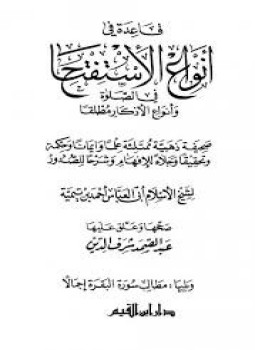 قاعدة في
أنواع الاستفتاح
في الصلوة
وأنواع الأذكار مطلقا
صحيفة ذهبية ممتلئة علما وإيمانا وحكمة
وتحقيقا وجلاء للإفهام وشرحا للصدور
لشيخ الإسلام أبي العباس أحمد بن تيمية
صححها وعلق عليها
عبد الصمد شرف الدين
وتليها: مطالب سورة البقرة إجمالا
دار ابن القيم